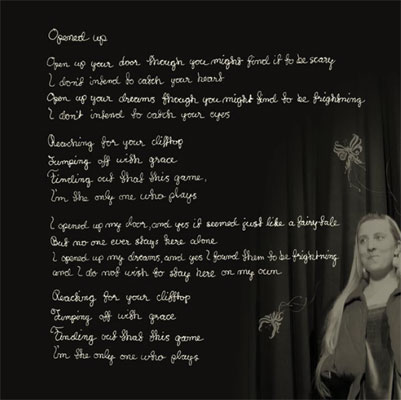 Opened up
Open up your door though you might find it to be scary
I don't intend to catch your heart
Open up your dreams though you might find to be frightning
I don't intend to catch your eyes
Reaching for your clifftop
Jumping off with grace
Finding out that this game,
I'm the only one who plays
I opened up my door, and yes it seemed just like a fairy-tale
But no one ever stays here alone
I opened up my dreams, and yes I found them to be frightning
and I do not wish to stay here on my own
Reaching for your clifftop
Jumping off with grace
Finding out that this game
I'm the only one who plays